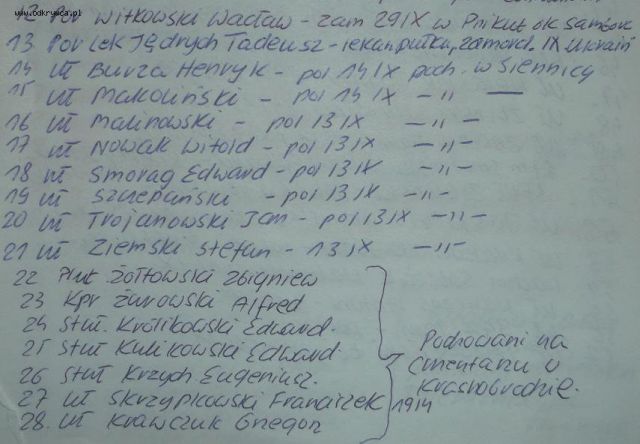 www.odkrywca.pl
Por Witkowski Wacław - zam 29 IX w Prikut ok Sambor
13 Por Lek Jędrych Tadeusz - lekarz pułku, zamord. IX Ukrain
14 uł Burza Henryk - pol 14 IX poch. w Siennicy
15 uł Makoliński - pol 14 IX - " -
16 uł Malinowski - pol 13 IX - " -
17 uł Nowak Witold - pol 13 IX - " -
18 uł Smorąg Edward - pol 13 IX - " -
19 uł Szczepański - pol 13 IX - " -
20 uł Trojanowski Jan - pol 13 IX - " -
21 uł Ziemski Stefan - 13 IX - " -
22 Plut Żółtowski Zbigniew
23 Kpr Żurowski Alfred
24 stuł. Królikowski Edward.
25 stuł Kulikowski Edward.
26 stuł Krzych Eugeniusz.
27 uł Skrzypkowski Franciszek 1914
28. uł Krawczuk Gregor
Pochowani na
cmentarzu w
Krasnobrodzie.